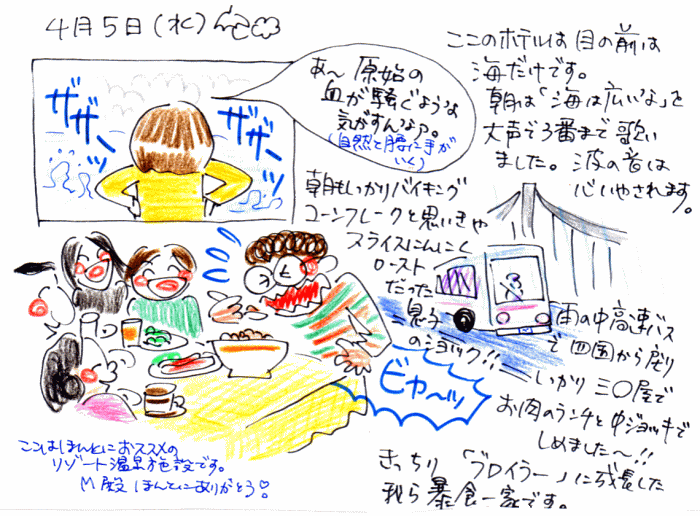 4月5日(水)
ここのホテルは目の前は
海だけです。
朝は「海は広いな」を
大声で3番まで歌い
ました。波の音は
心いやされます。
あ〜原始の
血が騒ぐような
気がすんなァ。
(自然と腰に手が
いく)
ザザーッ
ザザーッ
朝もしっかりバイキング
コーンフレークと思いきや
スライスにんにく
ロースト
だった
息子
のショック!!
ビャ〜ッ
雨の中高速バス
で四国から戻り
しっかり三〇屋で
お肉のランチと中ジョッキで
しめました〜!!
きっちり「ブロイラー」に成長した
我ら暴食一家です。
ここはほんとにおススメの
リゾート温泉施設です。
M殿ほんとにありがとう!